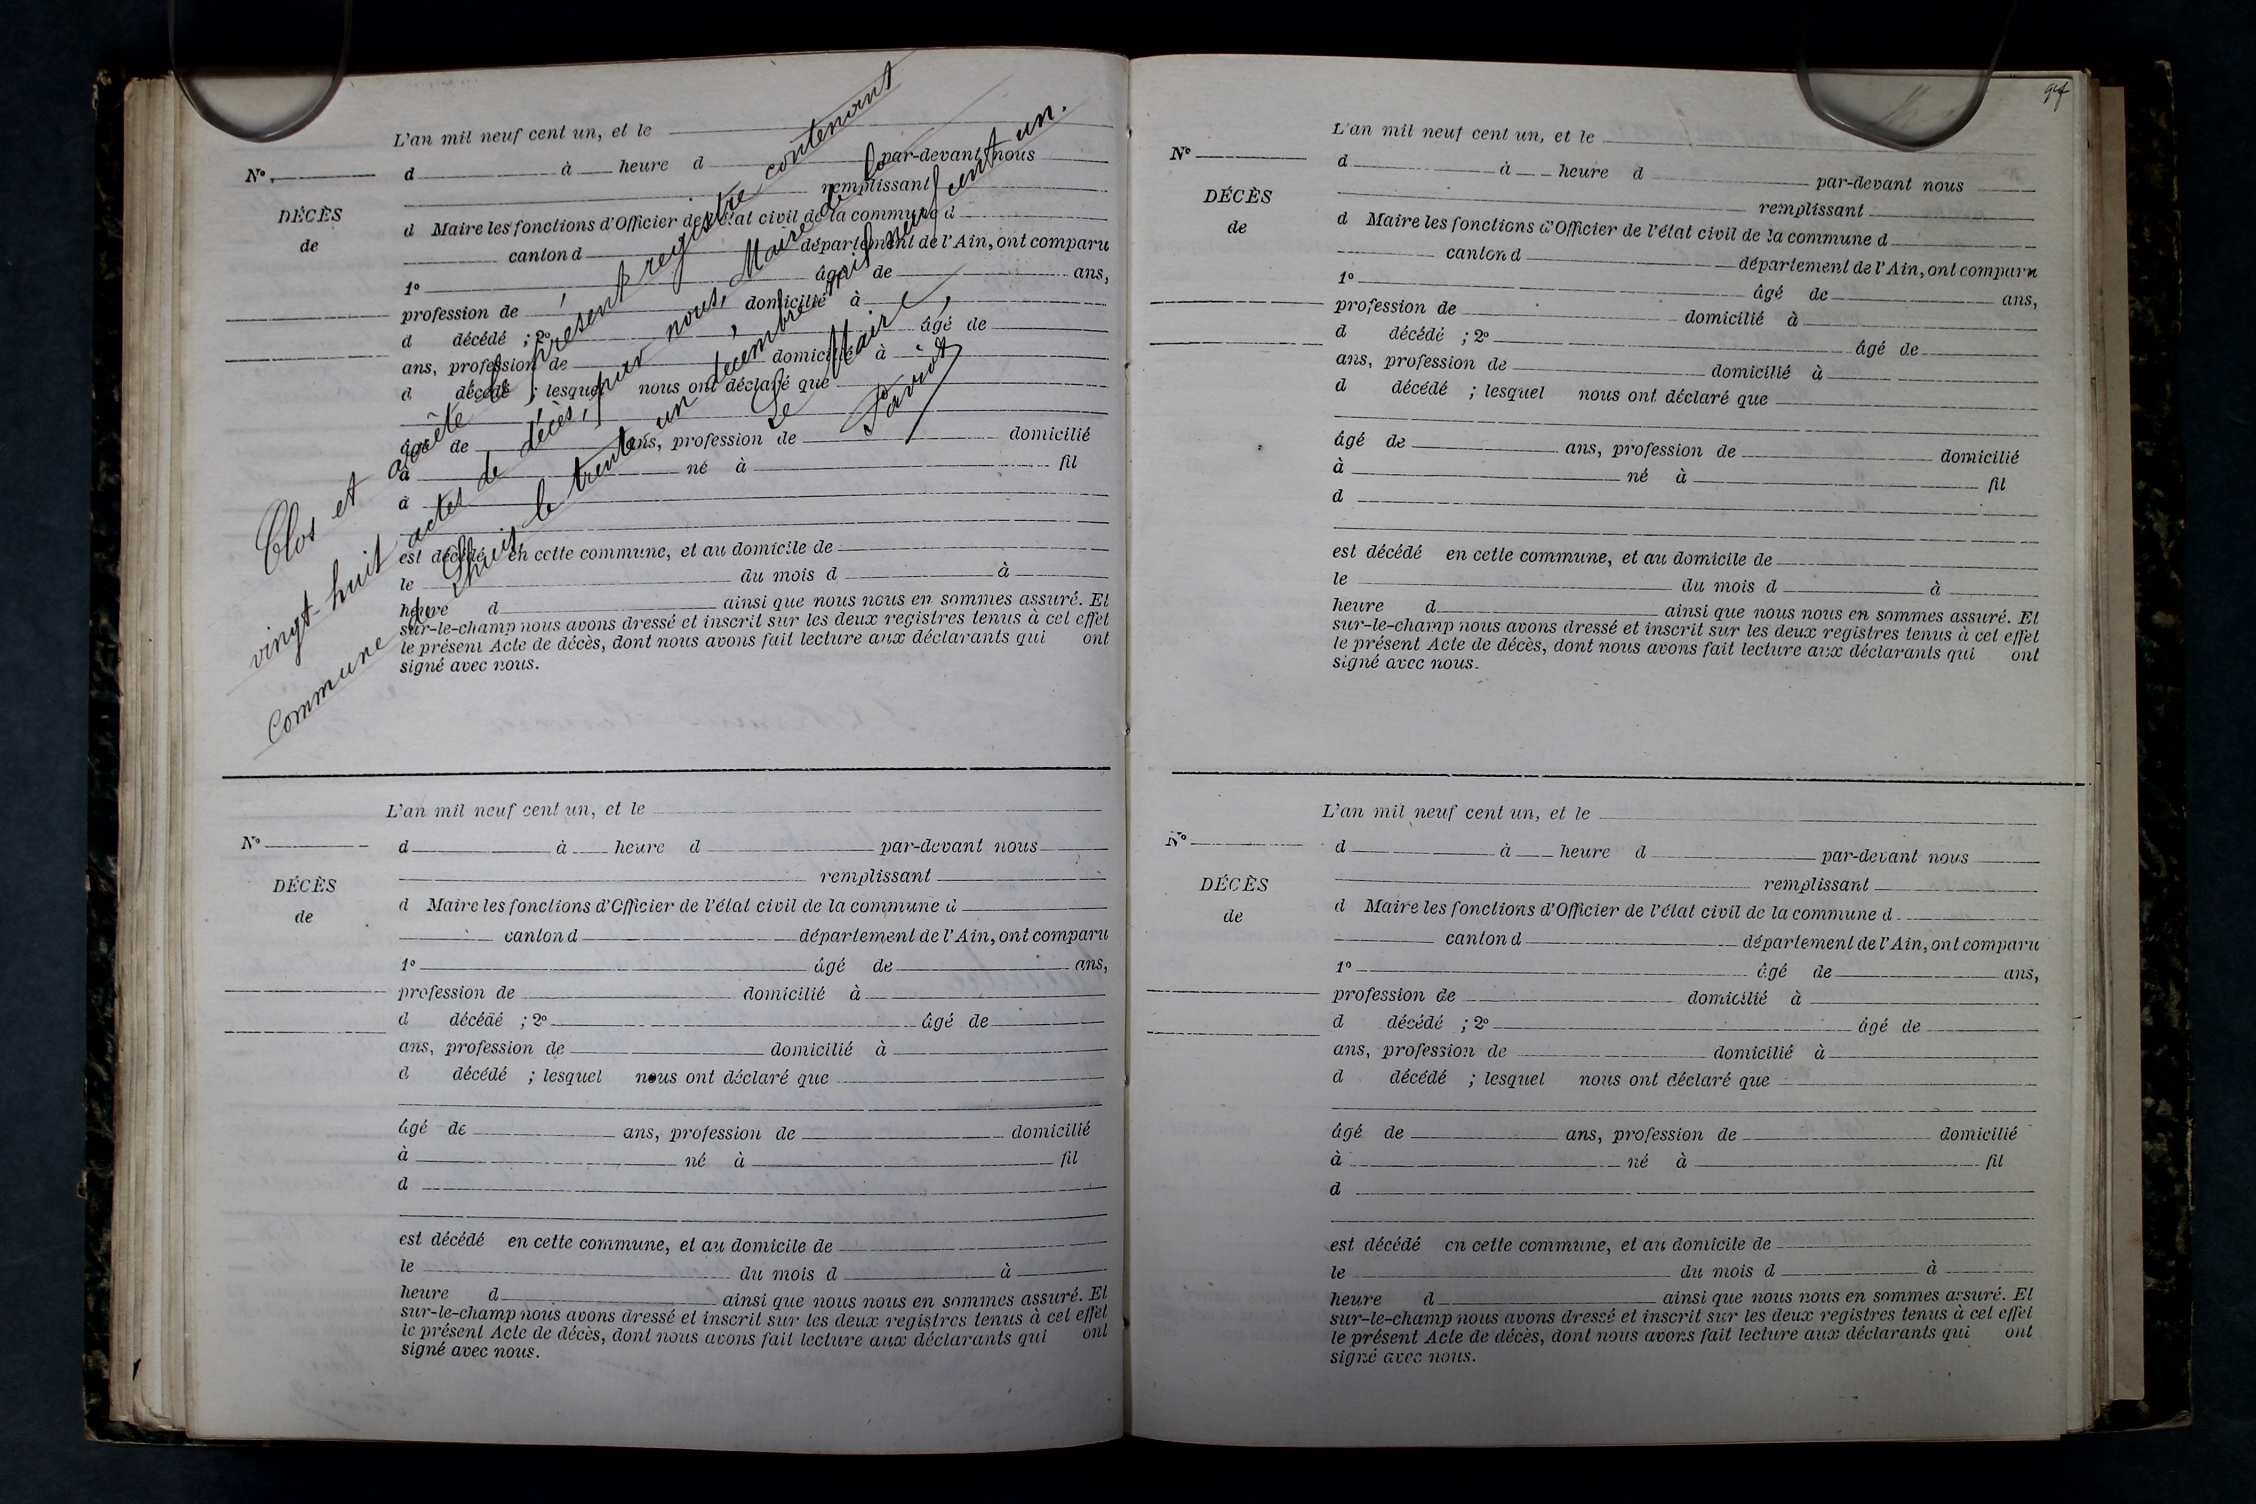 L'an mil neuf cent un, et le
N°
d à heure d par-devant nous
remplissant
DÉCÈS
de
d Maire les fonctions d'Officier de l'état civil de la commune d
canton d département de l'Ain, ont comparu
1° âgé de ans,
profession de domicilié à
d décédé ; 2° âgé de
ans, profession de domicilié à
d décédé ; lesquel nous ont déclaré que
âgé de ans, profession de domicilié
à né à fil
à
est décédé en cette commune, et au domicile de
le du mois d à
heure d ainsi que nous nous en sommes assuré. Et
sur-le-champ nous avons dressé et inscrit sur les deux registres tenus à cet effet
le présent Acte de décès, dont nous avons fait lecture aux déclarants qui ont
signé avec nous.
Clos et arrêté le présent registre contenant
vingt-huit actes de décès, par nous, Maire de la
commune de le trente un décembre mil neuf cent un.
Le Maire,
L'an mil neuf cent un, et le
N°
d à heure d par-devant nous
remplissant
DÉCÈS
de
d Maire les fonctions d'Officier de l'état civil de la commune d
canton d département de l'Ain, ont comparu
1° âgé de ans,
profession de domicilié à
d décédé ; 2° âgé de
ans, profession de domicilié à
d décédé ; lesquel nous ont déclaré que
âgé de ans, profession de domicilié
à né à fil
d
est décédé en cette commune, et au domicile de
le du mois d à
heure d ainsi que nous nous en sommes assuré. Et
sur-le-champ nous avons dressé et inscrit sur les deux registres tenus à cet effet
le présent Acte de décès, dont nous avons fait lecture aux déclarants qui ont
signé avec nous.
L'an mil neuf cent un, et le
N°
d à heure d par-devant nous
remplissant
DÉCÈS
de
d Maire les fonctions d'Officier de l'état civil de la commune d
canton d département de l'Ain, ont comparu
1° âgé de ans,
profession de domicilié à
d décédé ; 2° âgé de
ans, profession de domicilié à
d décédé ; lesquel nous ont déclaré que
âgé de ans, profession de domicilié
à né à fil
d
est décédé en cette commune, et au domicile de
le du mois d à
heure d ainsi que nous nous en sommes assuré. Et
sur-le-champ nous avons dressé et inscrit sur les deux registres tenus à cet effet
le présent Acte de décès, dont nous avons fait lecture aux déclarants qui ont
signé avec nous.
L'an mil neuf cent un, et le
N°
d à heure d par-devant nous
remplissant
DÉCÈS
de
d Maire les fonctions d'Officier de l'état civil de la commune d
canton d département de l'Ain, ont comparu
1° âgé de ans,
profession de domicilié à
d décédé ; 2° âgé de
ans, profession de domicilié à
d décédé ; lesquel nous ont déclaré que
âgé de ans, profession de domicilié
à né à fil
d
est décédé en cette commune, et au domicile de
le du mois d à
heure d ainsi que nous nous en sommes assuré. Et
sur-le-champ nous avons dressé et inscrit sur les deux registres tenus à cet effet
le présent Acte de décès, dont nous avons fait lecture aux déclarants qui ont
signé avec nous.